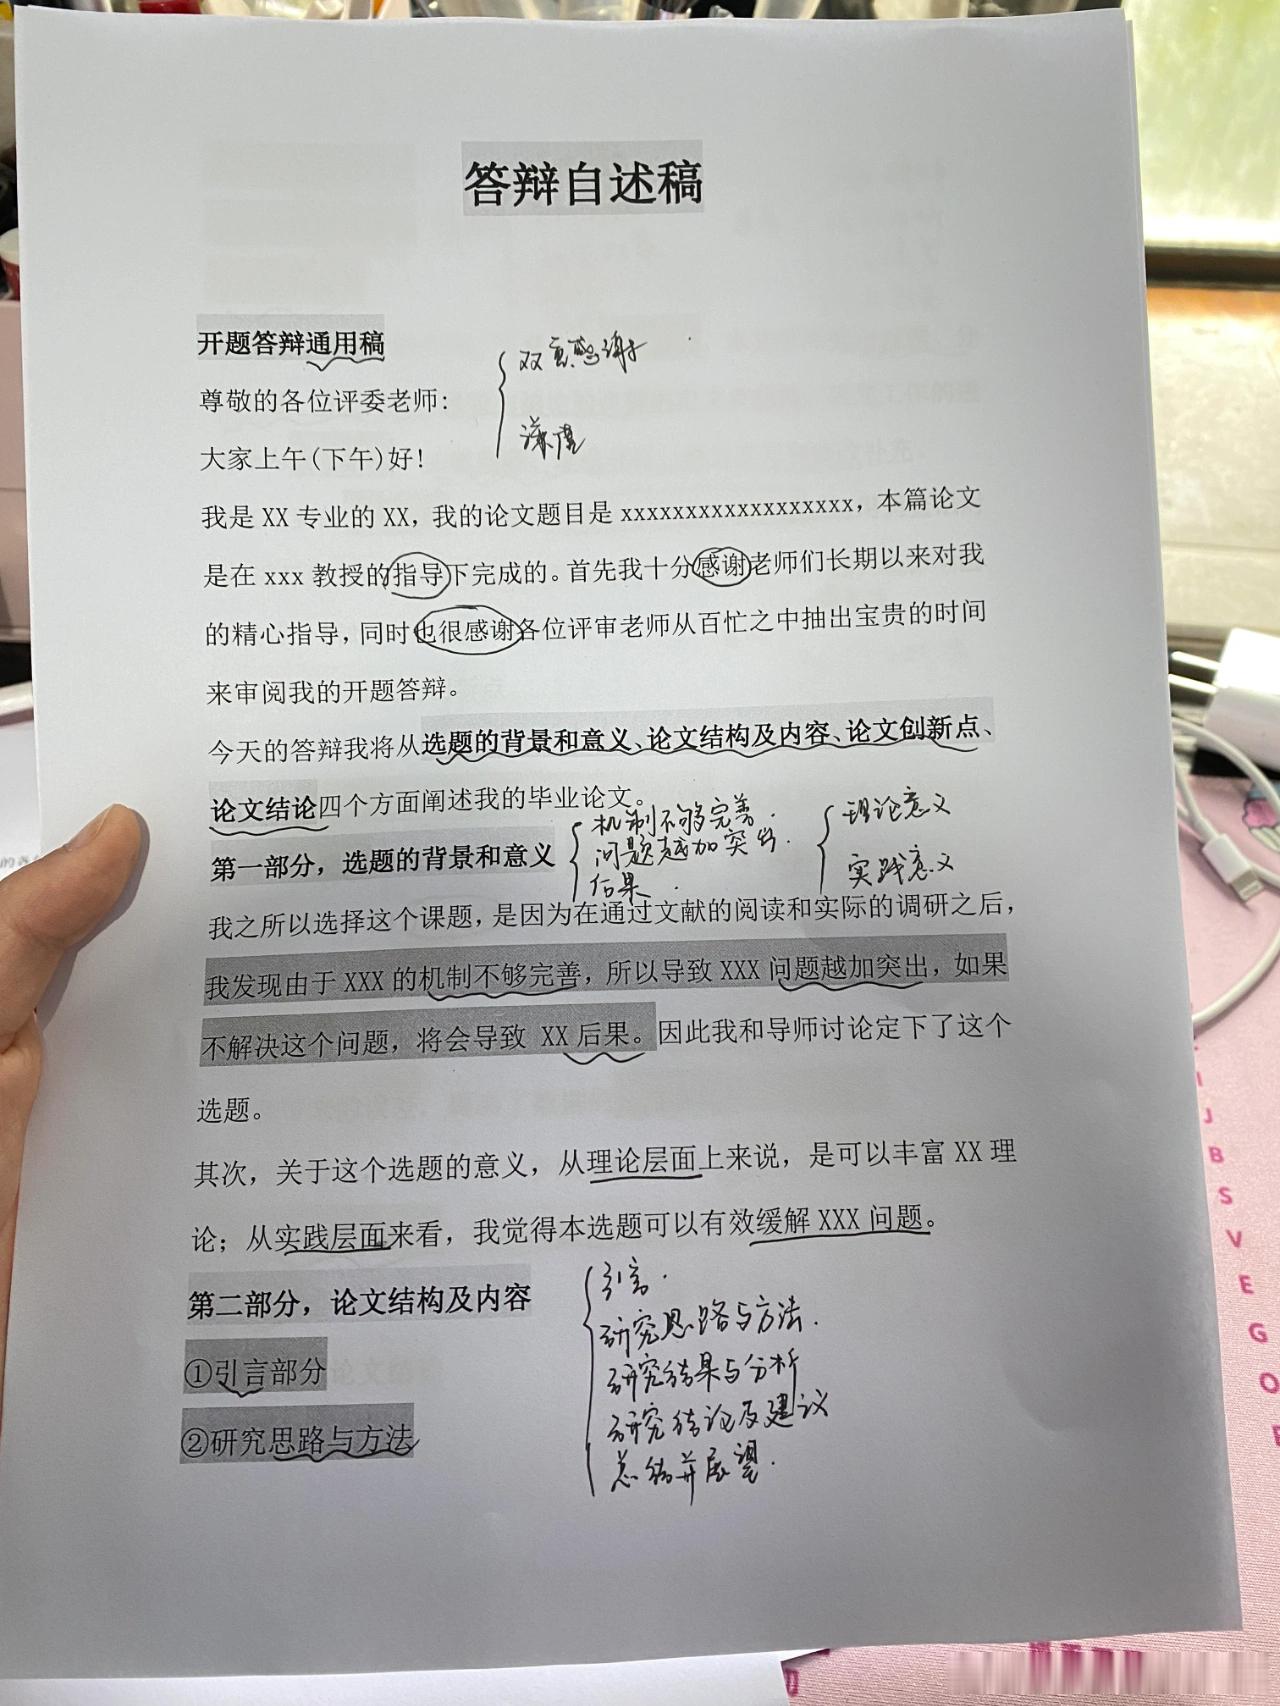 答辩自述稿
开题答辩通用稿
双重感谢
尊敬的各位评委老师：
谦虚
大家上午(下午)好！
我是 XX 专业的 XX，我的论文题目是 xxxxxxxxxxxxxxxxxx，本篇论文
是在 xxx 教授的指导下完成的。首先我十分感谢老师们长期以来对我
的精心指导，同时也很感谢各位评审老师从百忙之中抽出宝贵的时间
来审阅我的开题答辩。
今天的答辩我将从选题的背景和意义、论文结构及内容、论文创新点、
论文结论四个方面阐述我的毕业论文。
第一部分，选题的背景和意义
机制不够完善.
问题越加突出.
后果.
理论意义
实践意义
我之所以选择这个课题，是因为在通过文献的阅读和实际的调研之后，
我发现由于 XXX 的机制不够完善，所以导致 XXX 问题越加突出，如果
不解决这个问题，将会导致 XX 后果。因此我和导师讨论定下了这个
选题。
其次，关于这个选题的意义，从理论层面上来说，是可以丰富 XX 理
论；从实践层面来看，我觉得本选题可以有效缓解 XXX 问题。
第二部分，论文结构及内容
①引言部分
②研究思路与方法
引言.
研究思路与方法.
研究结果与分析
研究结论及建议
总结并展望.
I
J
B
S
V
E
G
O